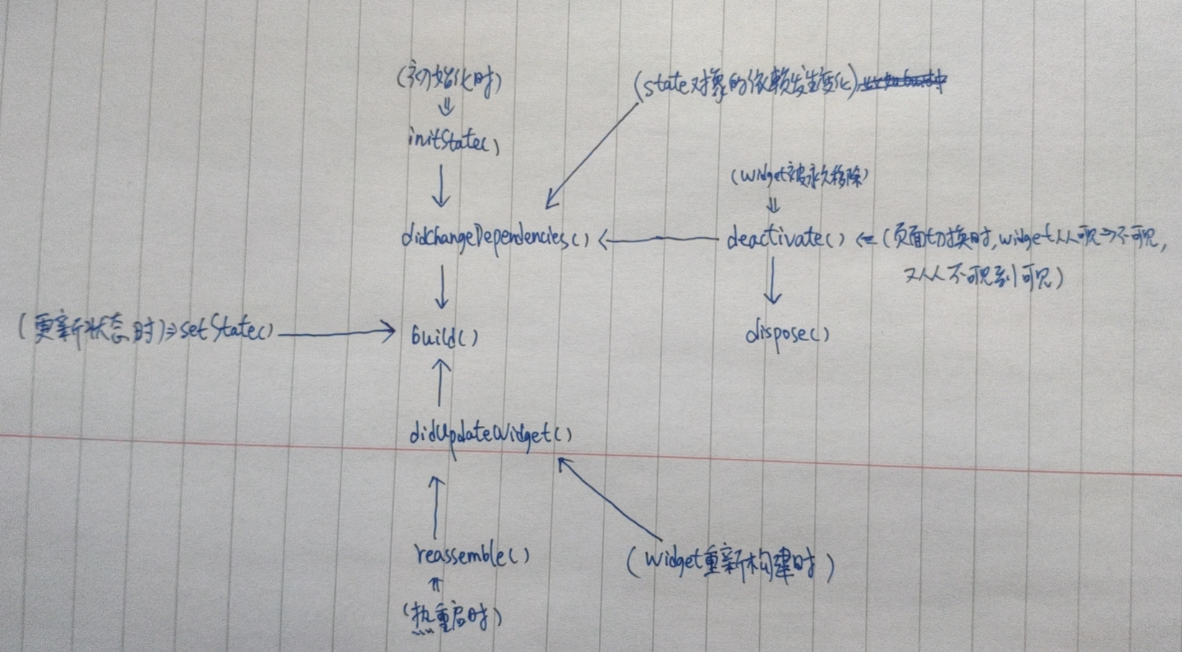 (初始化时)
(state对象的依赖发生变化)
⇓
initState()
(widget被永久移除)
⇓
didChangeDependencies()
deactivate() ⇐ (页面切换时,widget从可见⇒不可见,
又从不可见到可见)
(更新状态时)⇒setState()
build()
dispose()
didUpdateWidget()
reassemble()
(widget重新构建时)
⇑
(热重启时)